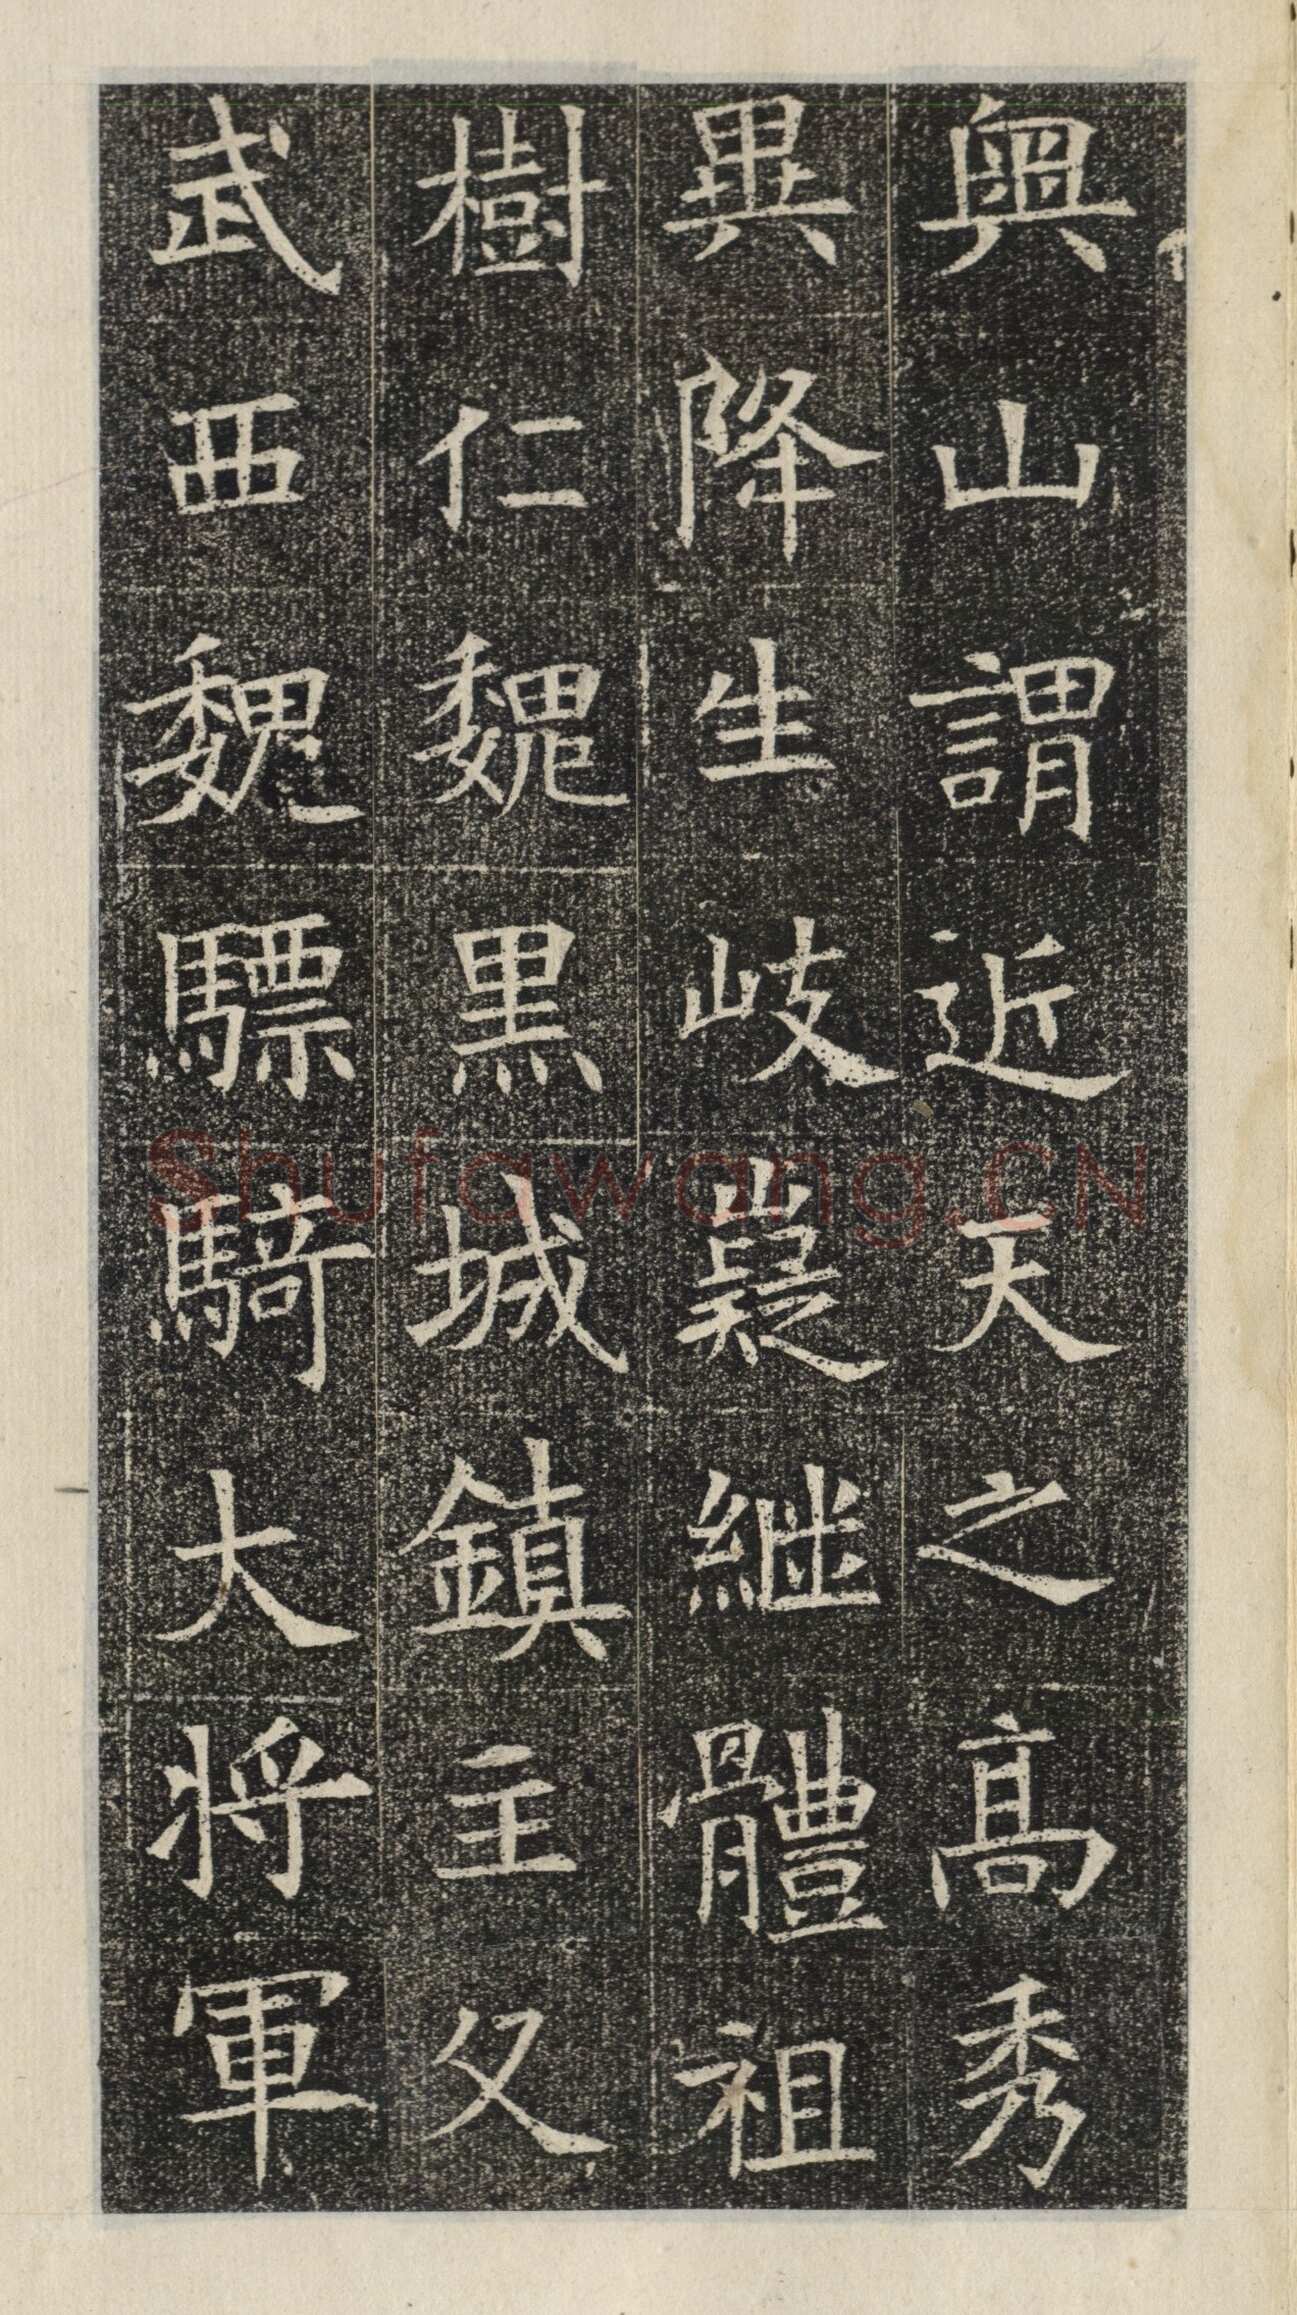 奧山謂近天之高秀
異降生岐嶷継體祖
樹仁魏黑城鎮主父
武西魏驃騎大将軍
Shufawang.CN